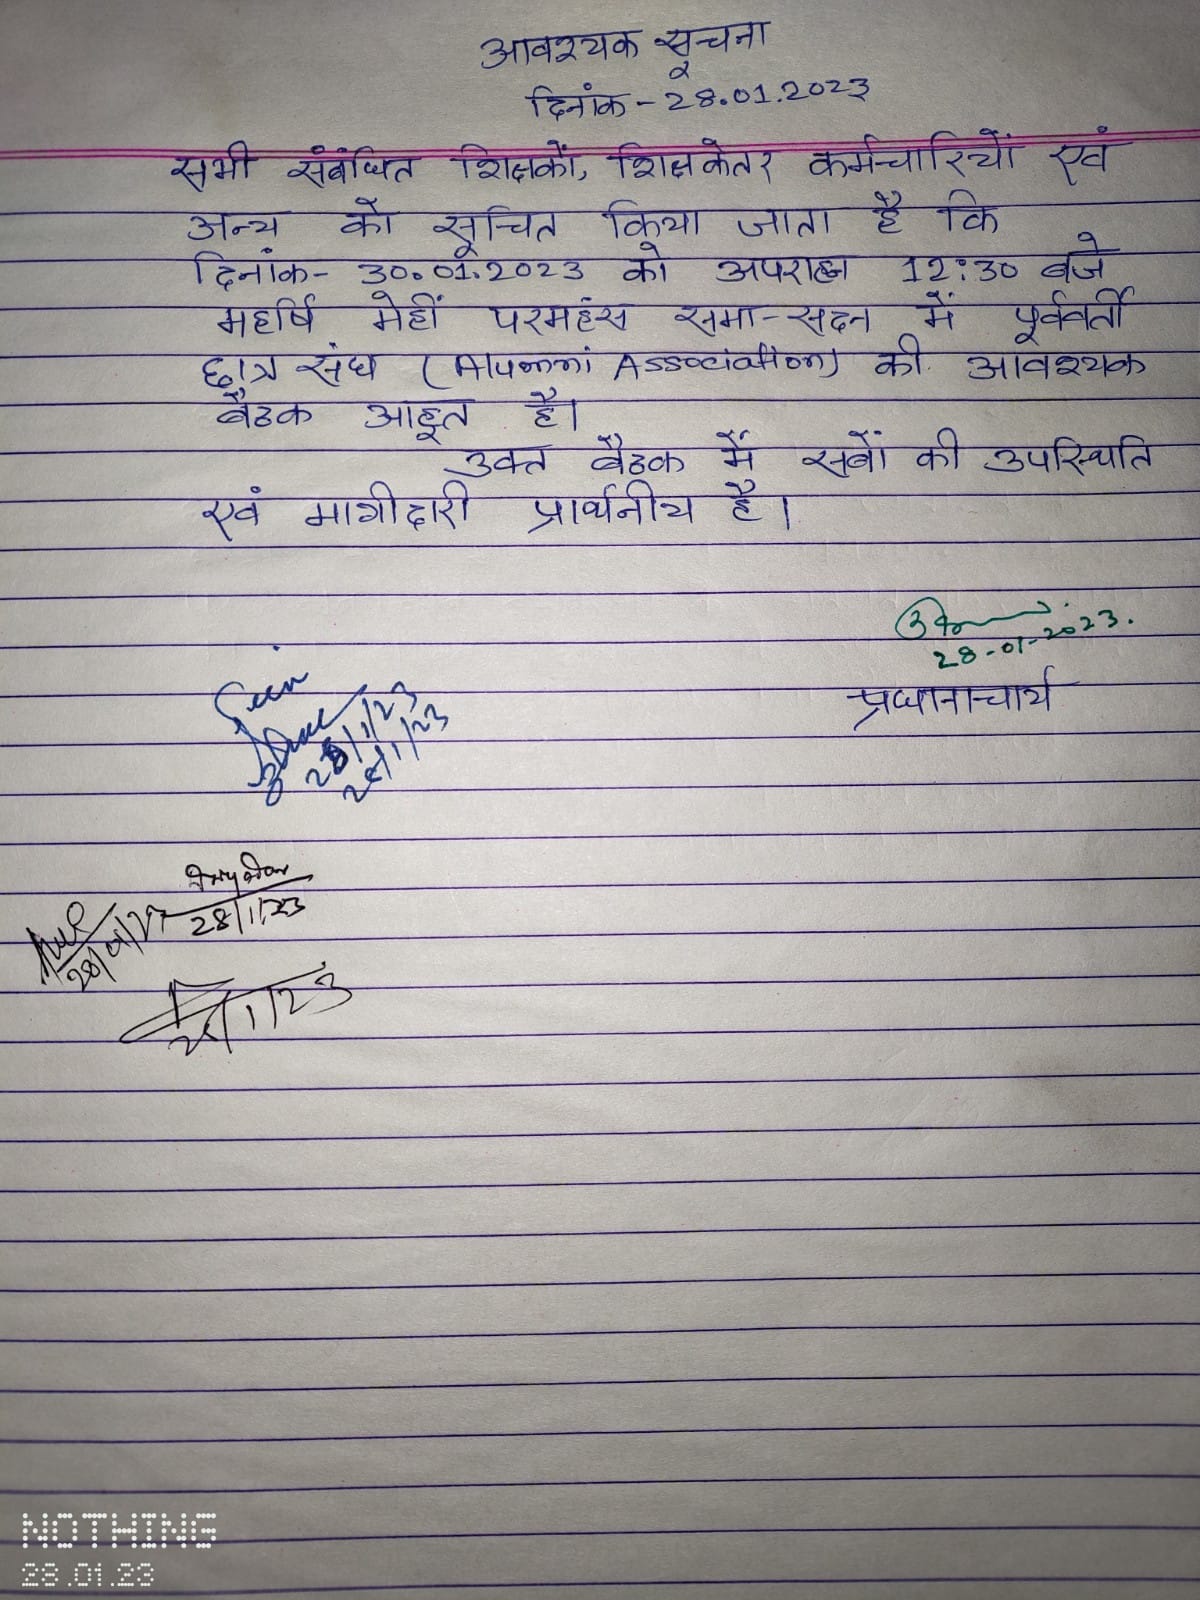 आवश्यक सूचना
दिनांक - 28.01.2023
सभी संबंधित शिक्षकों, शिक्षकेतर कर्मचारियों एवं
अन्य को सूचित किया जाता है कि
दिनांक- 30.01.2023 को अपराह्न 12:30 बजे
महर्षि मेहीं परमहंस सभा-सदन में पूर्ववर्ती
छात्र संघ (Alumni Association) की आवश्यक
बैठक आहूत है।
उक्त बैठक में सबों की उपस्थिति
एवं भागीदारी प्रार्थनीय है।
28-01-2023.
प्रधानाचार्य
Seen
28/1/23
28/1/23
28/1/23
28/01/23
28/1/23
NOTHING
28.01.23